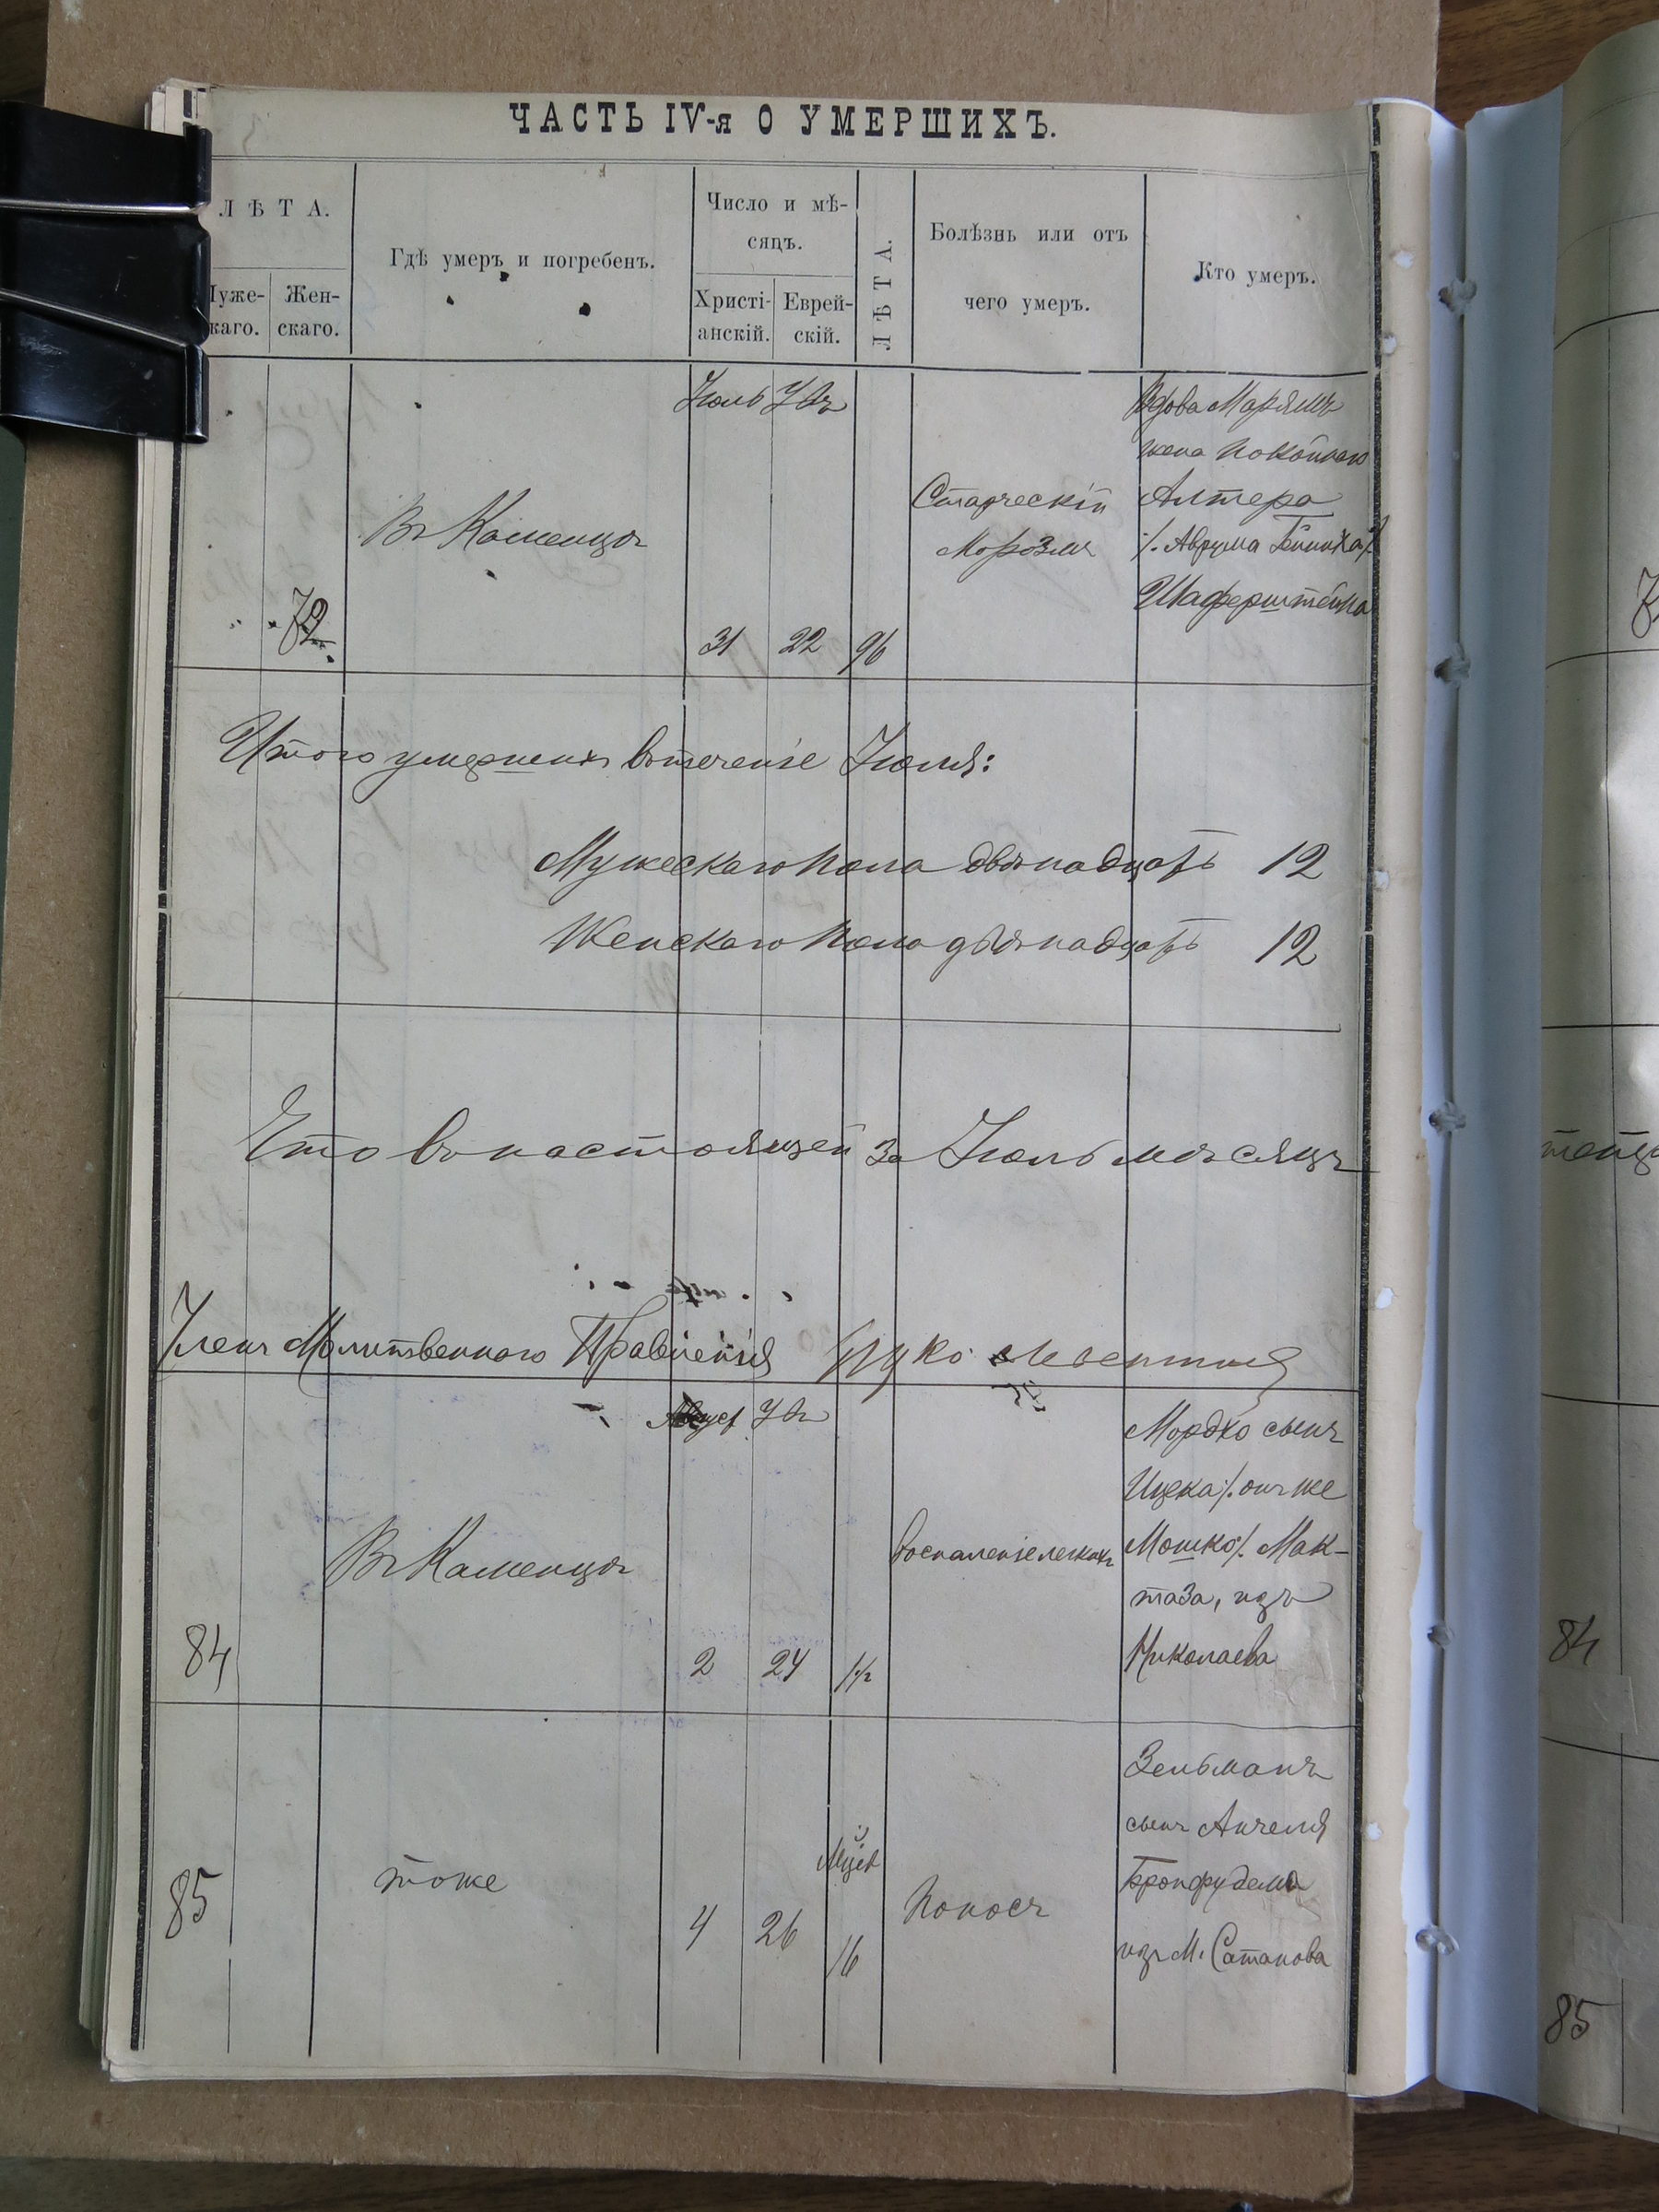 ЧАСТЬ IV-я О УМЕРШИХЪ.
ЛѢТА.
Муже-
скаго.
Жен-
скаго.
Гдѣ умеръ и погребенъ.
Число и мѣ-
сяцъ.
Христі-
анскій.
Еврей-
скій.
ЛѢТА.
Болѣзнь или отъ
чего умеръ.
Кто умеръ.
ІюльУвъ
72
Въ Каменцѣ
31
22
96
Старческій
Морозмъ
Вдова Марямъ
жена покойнаго
Алтера
/. Аврума
Шаферштейна
Итого умершихъ втеченіе Іюля:
Мужескаго пола двѣнадцать 12
Женскаго пола двѣнадцать 12
Что въ настоящей за Іюль мѣсяцъ
Членъ Молитвенного Правленія
Август Увъ
84
Въ Каменцѣ
2
24
1½
воспаленіе легкихъ
Мордко сынъ
Ицека /. онъ же
Мошко /. Мак-
таза, изъ
Николаева
85
тоже
4
26
Мцев
16
Поносъ
Зельманъ
сынъ Анчеля
Бронфудема
изъ М. Сатанова
84
85